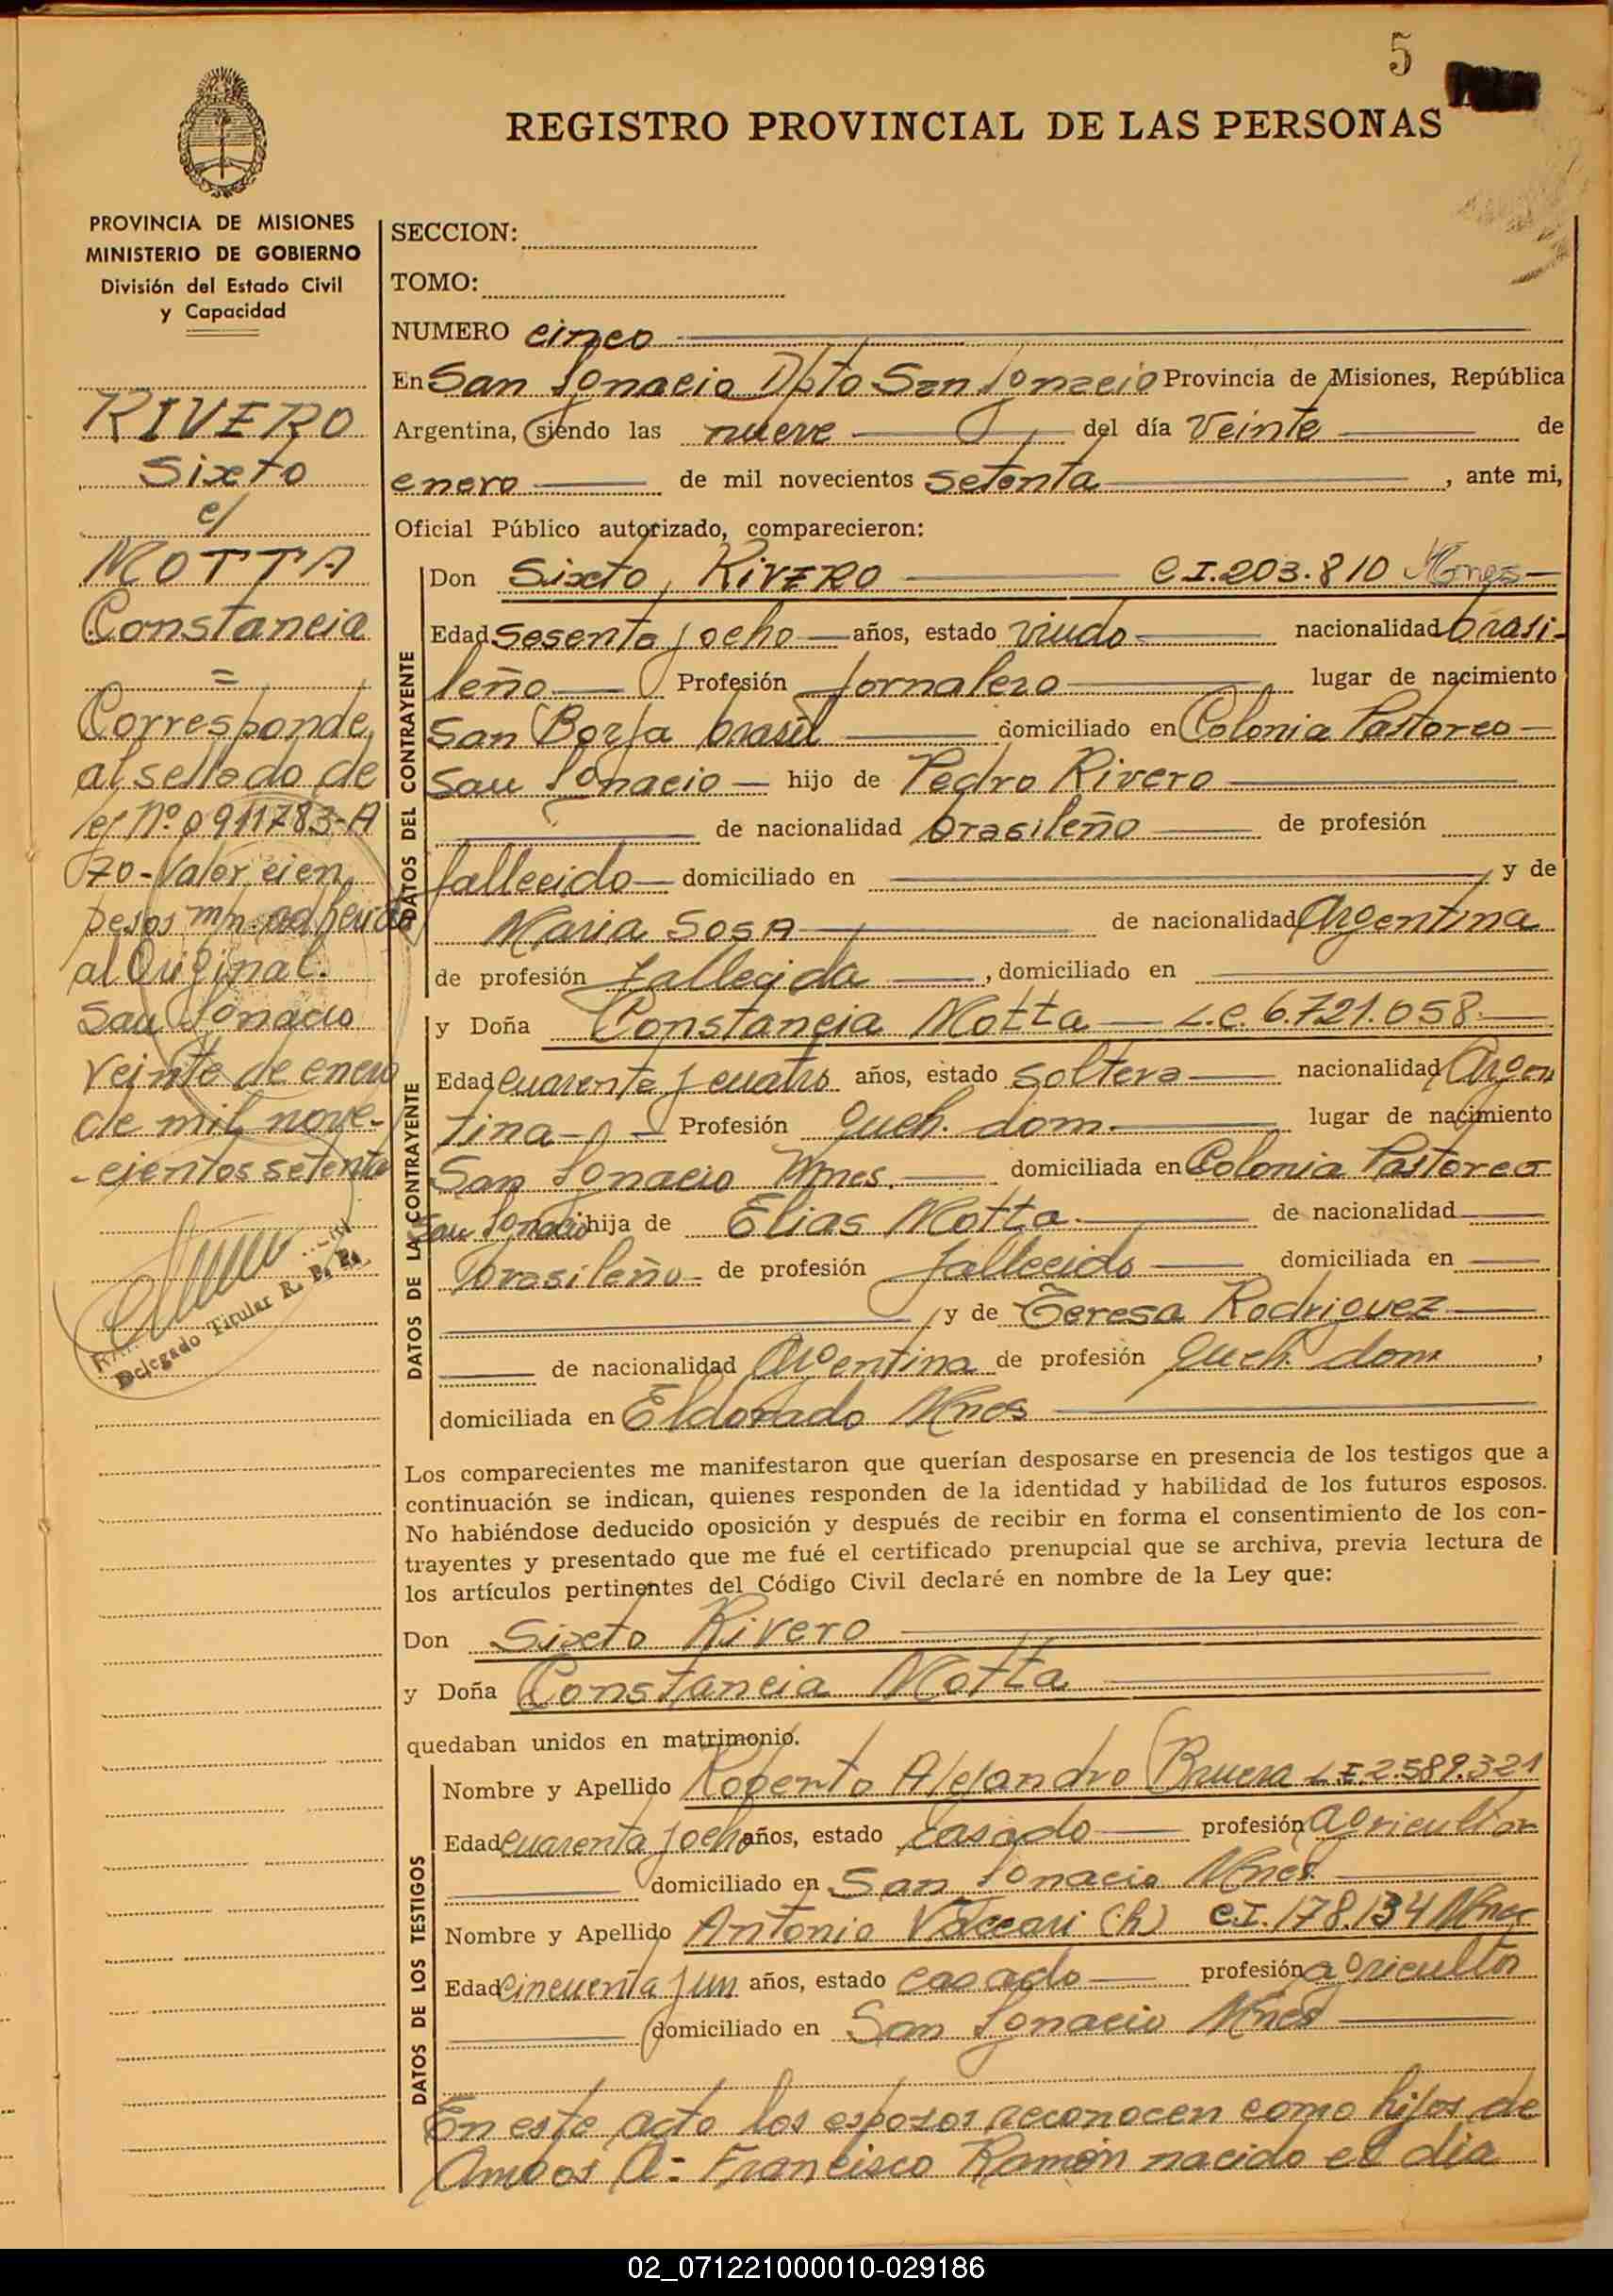 5
REGISTRO PROVINCIAL DE LAS PERSONAS
PROVINCIA DE MISIONES
MINISTERIO DE GOBIERNO
División del Estado Civil
y Capacidad
RIVERO
Sixto
c/
MOTTA
Constancia
=
Corresponde
al sellado de
ley Nº 0911783-A
70-Valor cien
pesos m/n. adherido
al Original.
San Ignacio
veinte de enero
de mil nove-
-cientos setenta
Delegado Titular R. P. P.
SECCION:
TOMO:
NUMERO cinco
En San Ignacio Dpto San Ignacio Provincia de Misiones, República
Argentina, siendo las nueve del día Veinte de
enero de mil novecientos setenta, ante mi,
Oficial Público autorizado, comparecieron:
DATOS DEL CONTRAYENTE
Don Sixto, RIVERO C.I.203.810 Mnes
Edad sesenta y ocho años, estado viudo nacionalidad brasi-
leño Profesión Jornalero lugar de nacimiento
San Borja brasil domiciliado en Colonia Pastoreo
San Ignacio hijo de Pedro Rivero
de nacionalidad brasileño de profesión
fallecido domiciliado en y de
Maria SosA de nacionalidad Argentina
de profesión fallecida, domiciliado en
DATOS DE LA CONTRAYENTE
y Doña Constancia Motta L.C. 6.721.058
Edad cuarenta y cuatro años, estado soltera nacionalidad Argen
tina Profesión queh. dom. lugar de nacimiento
San Ignacio Mnes. domiciliada en Colonia Pastoreo
San Ignacio hija de Elias Motta. de nacionalidad
brasileño de profesión fallecido domiciliada en
y de Teresa Rodriguez
de nacionalidad Argentina de profesión queh. dom,
domiciliada en Eldorado Mnes
Los comparecientes me manifestaron que querían desposarse en presencia de los testigos que a
continuación se indican, quienes responden de la identidad y habilidad de los futuros esposos.
No habiéndose deducido oposición y después de recibir en forma el consentimiento de los con-
trayentes y presentado que me fué el certificado prenupcial que se archiva, previa lectura de
los artículos pertinentes del Código Civil declaré en nombre de la Ley que:
Don Sixto Rivero
y Doña Constancia Motta
quedaban unidos en matrimonio.
DATOS DE LOS TESTIGOS
Nombre y Apellido Roberto Alejandro Bruera L.E.2.589.321
Edad cuarenta y ocho años, estado casado profesión agricultor
domiciliado en San Ignacio Mnes
Nombre y Apellido Antonio Vaccari (h) C.I. 178.134 Mnes
Edad cincuenta y un años, estado casado profesión agricultor
domiciliado en San Ignacio Mnes
En este acto los esposos reconocen como hijos de
Ambos A= Francisco Ramón nacido el dia
02_071221000010-029186